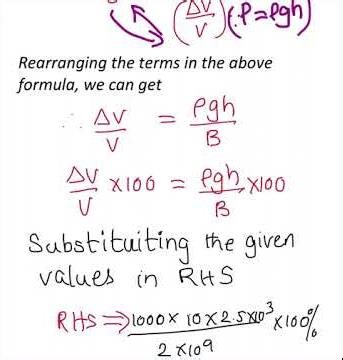 (ΔV/V) (∵P=ρgh)
Rearranging the terms in the above
formula, we can get
∴ ΔV/V = ρgh/B
ΔV/V ×100 = ρgh/B ×100
Substituiting the given
values in RHS
RHS ⇒ 1000 × 10 × 2.5×10³/2 ×10⁹ ×100%